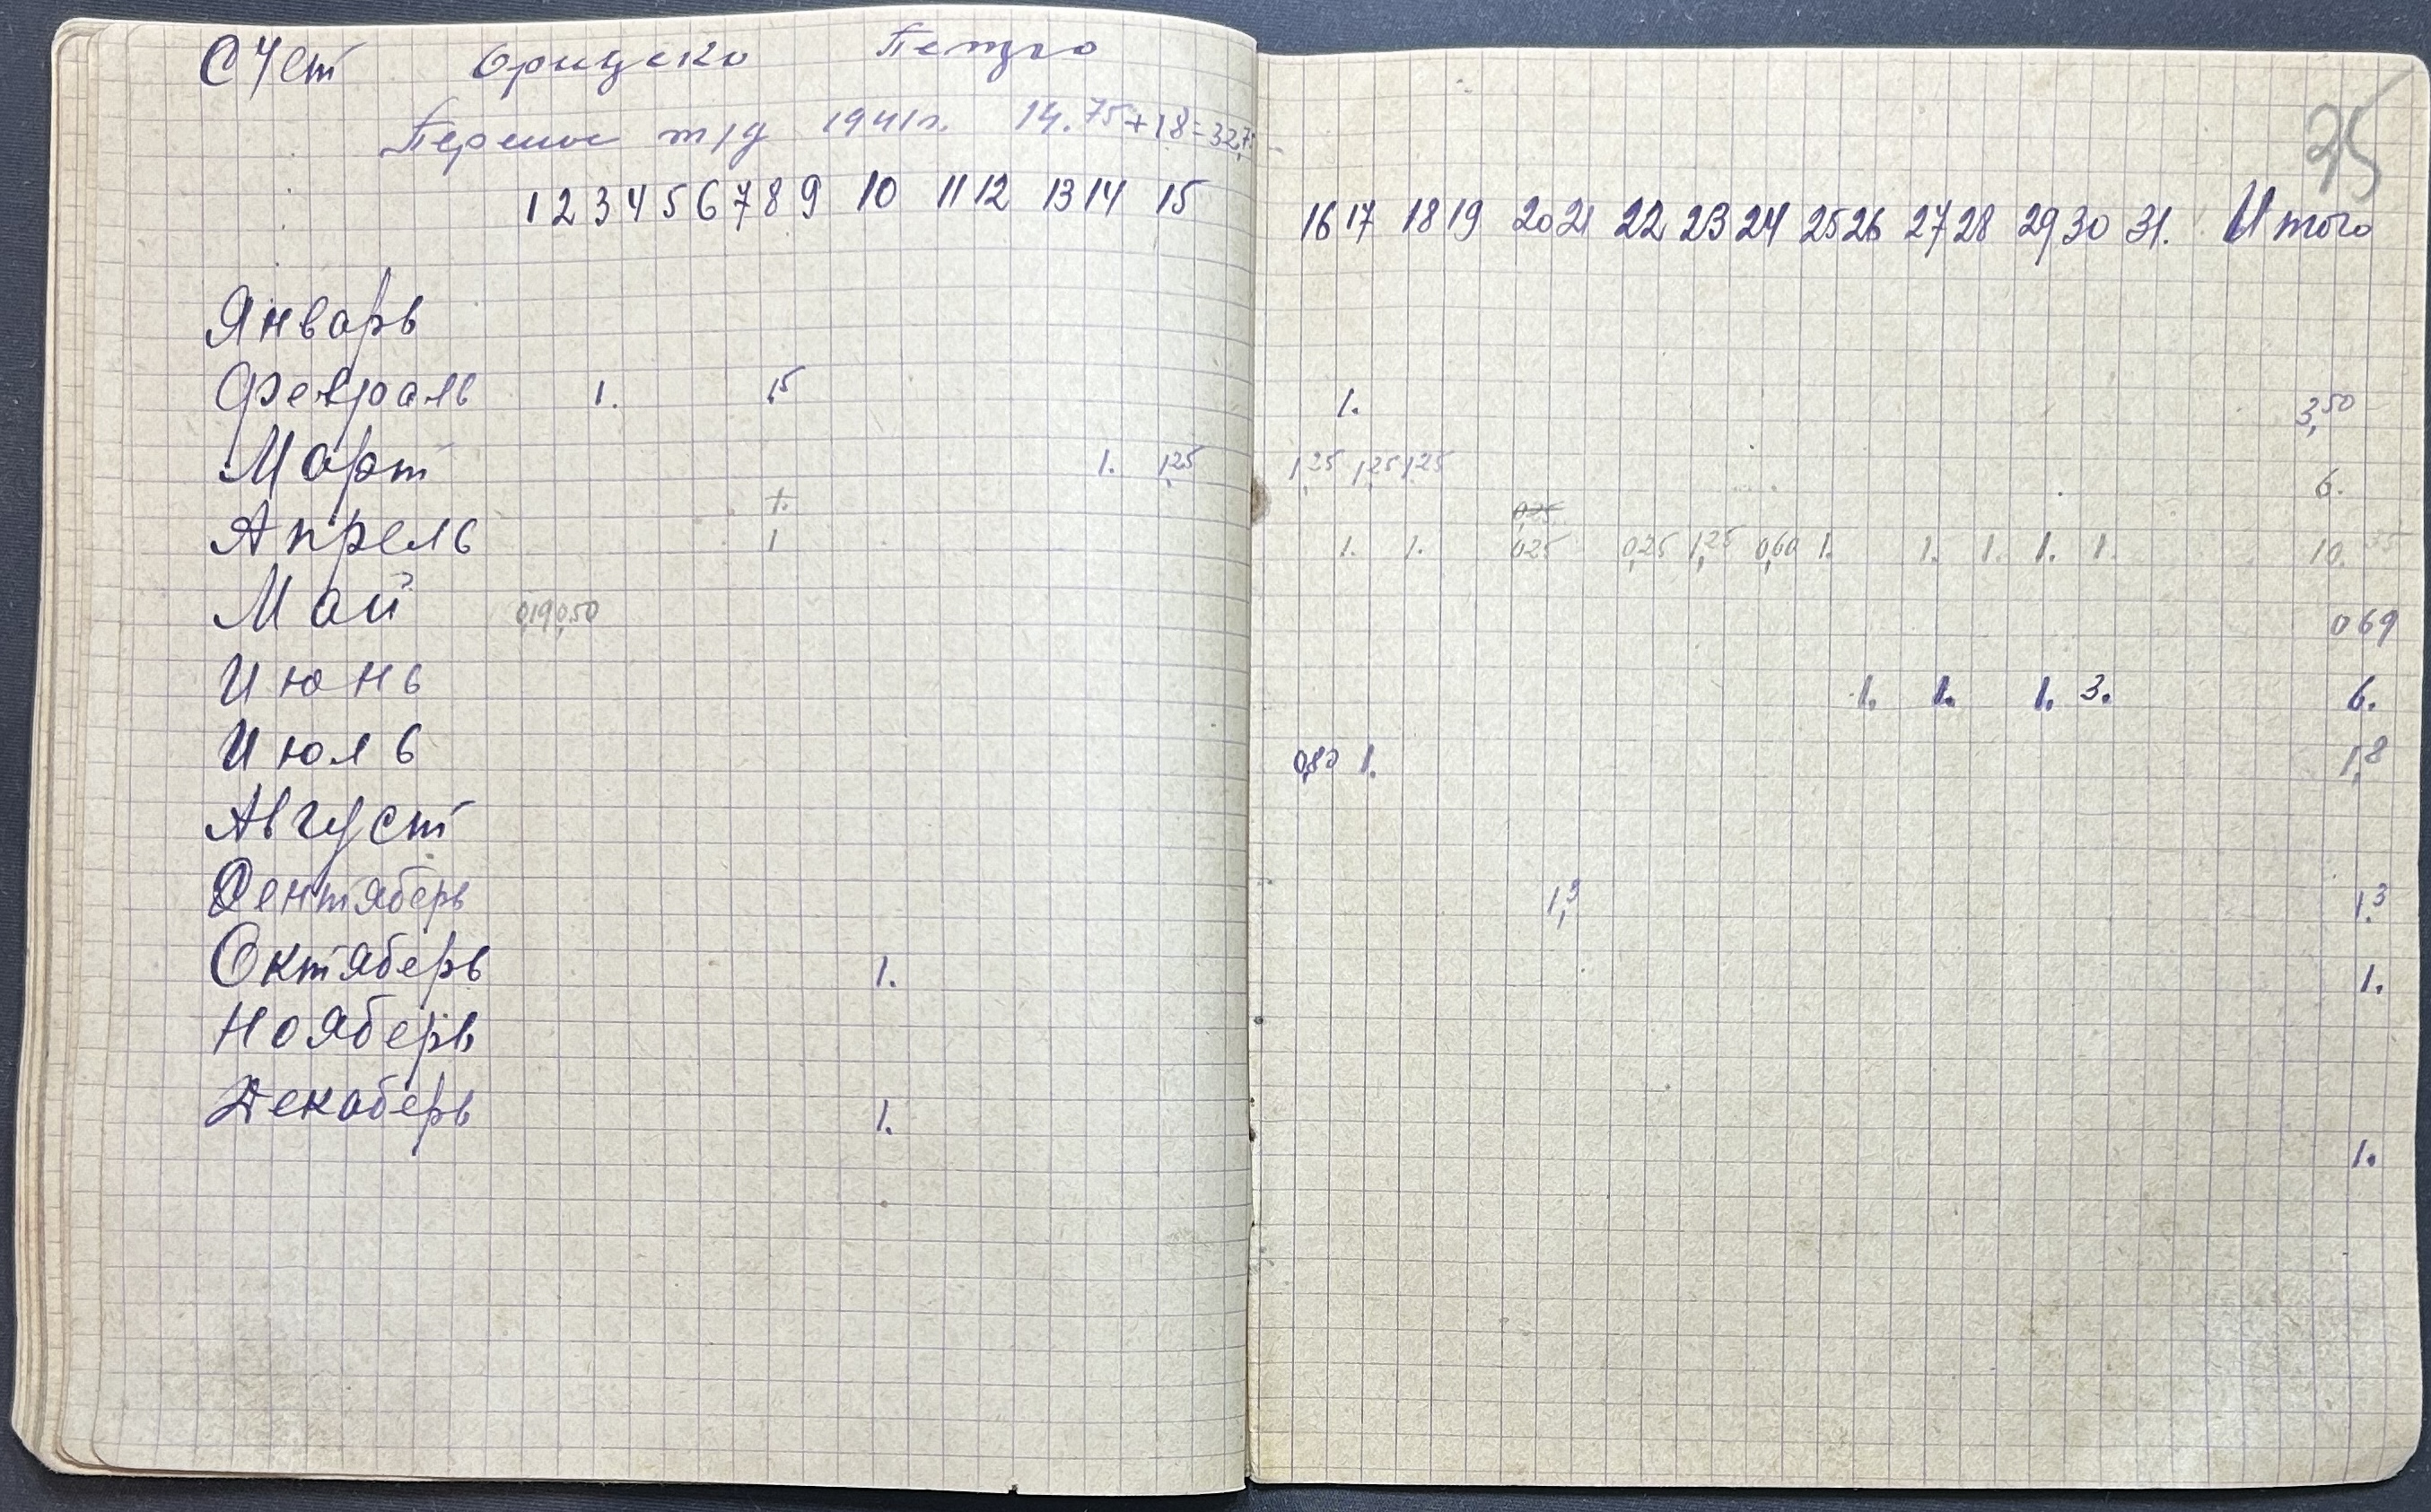 Счет Орищско Петро
Перенос т/д 1941 г. 14.75 + 18 = 32,75
25
1 2 3 4 5 6 7 8 9 10 11 12 13 14 15 16 17 18 19 20 21 22 23 24 25 26 27 28 29 30 31. Итого
Январь
Февраль 1. 1,5 1. 3,50
Март 1. 1,25 1,25 1,25 1,25 6.
1. 0,25
Апрель 1 1. 1. 0,25 0,25 1,25 0,60 1. 1. 1. 1. 1. 10.35
Май 0,19 0,50 0 69
Июнь 1. 1. 1. 3. 6.
Июль 0,80 1. 1,8
Август
Сентяберь 1,3 1.3
Октяберь 1. 1.
Нояберь
Декаберь 1.
1.